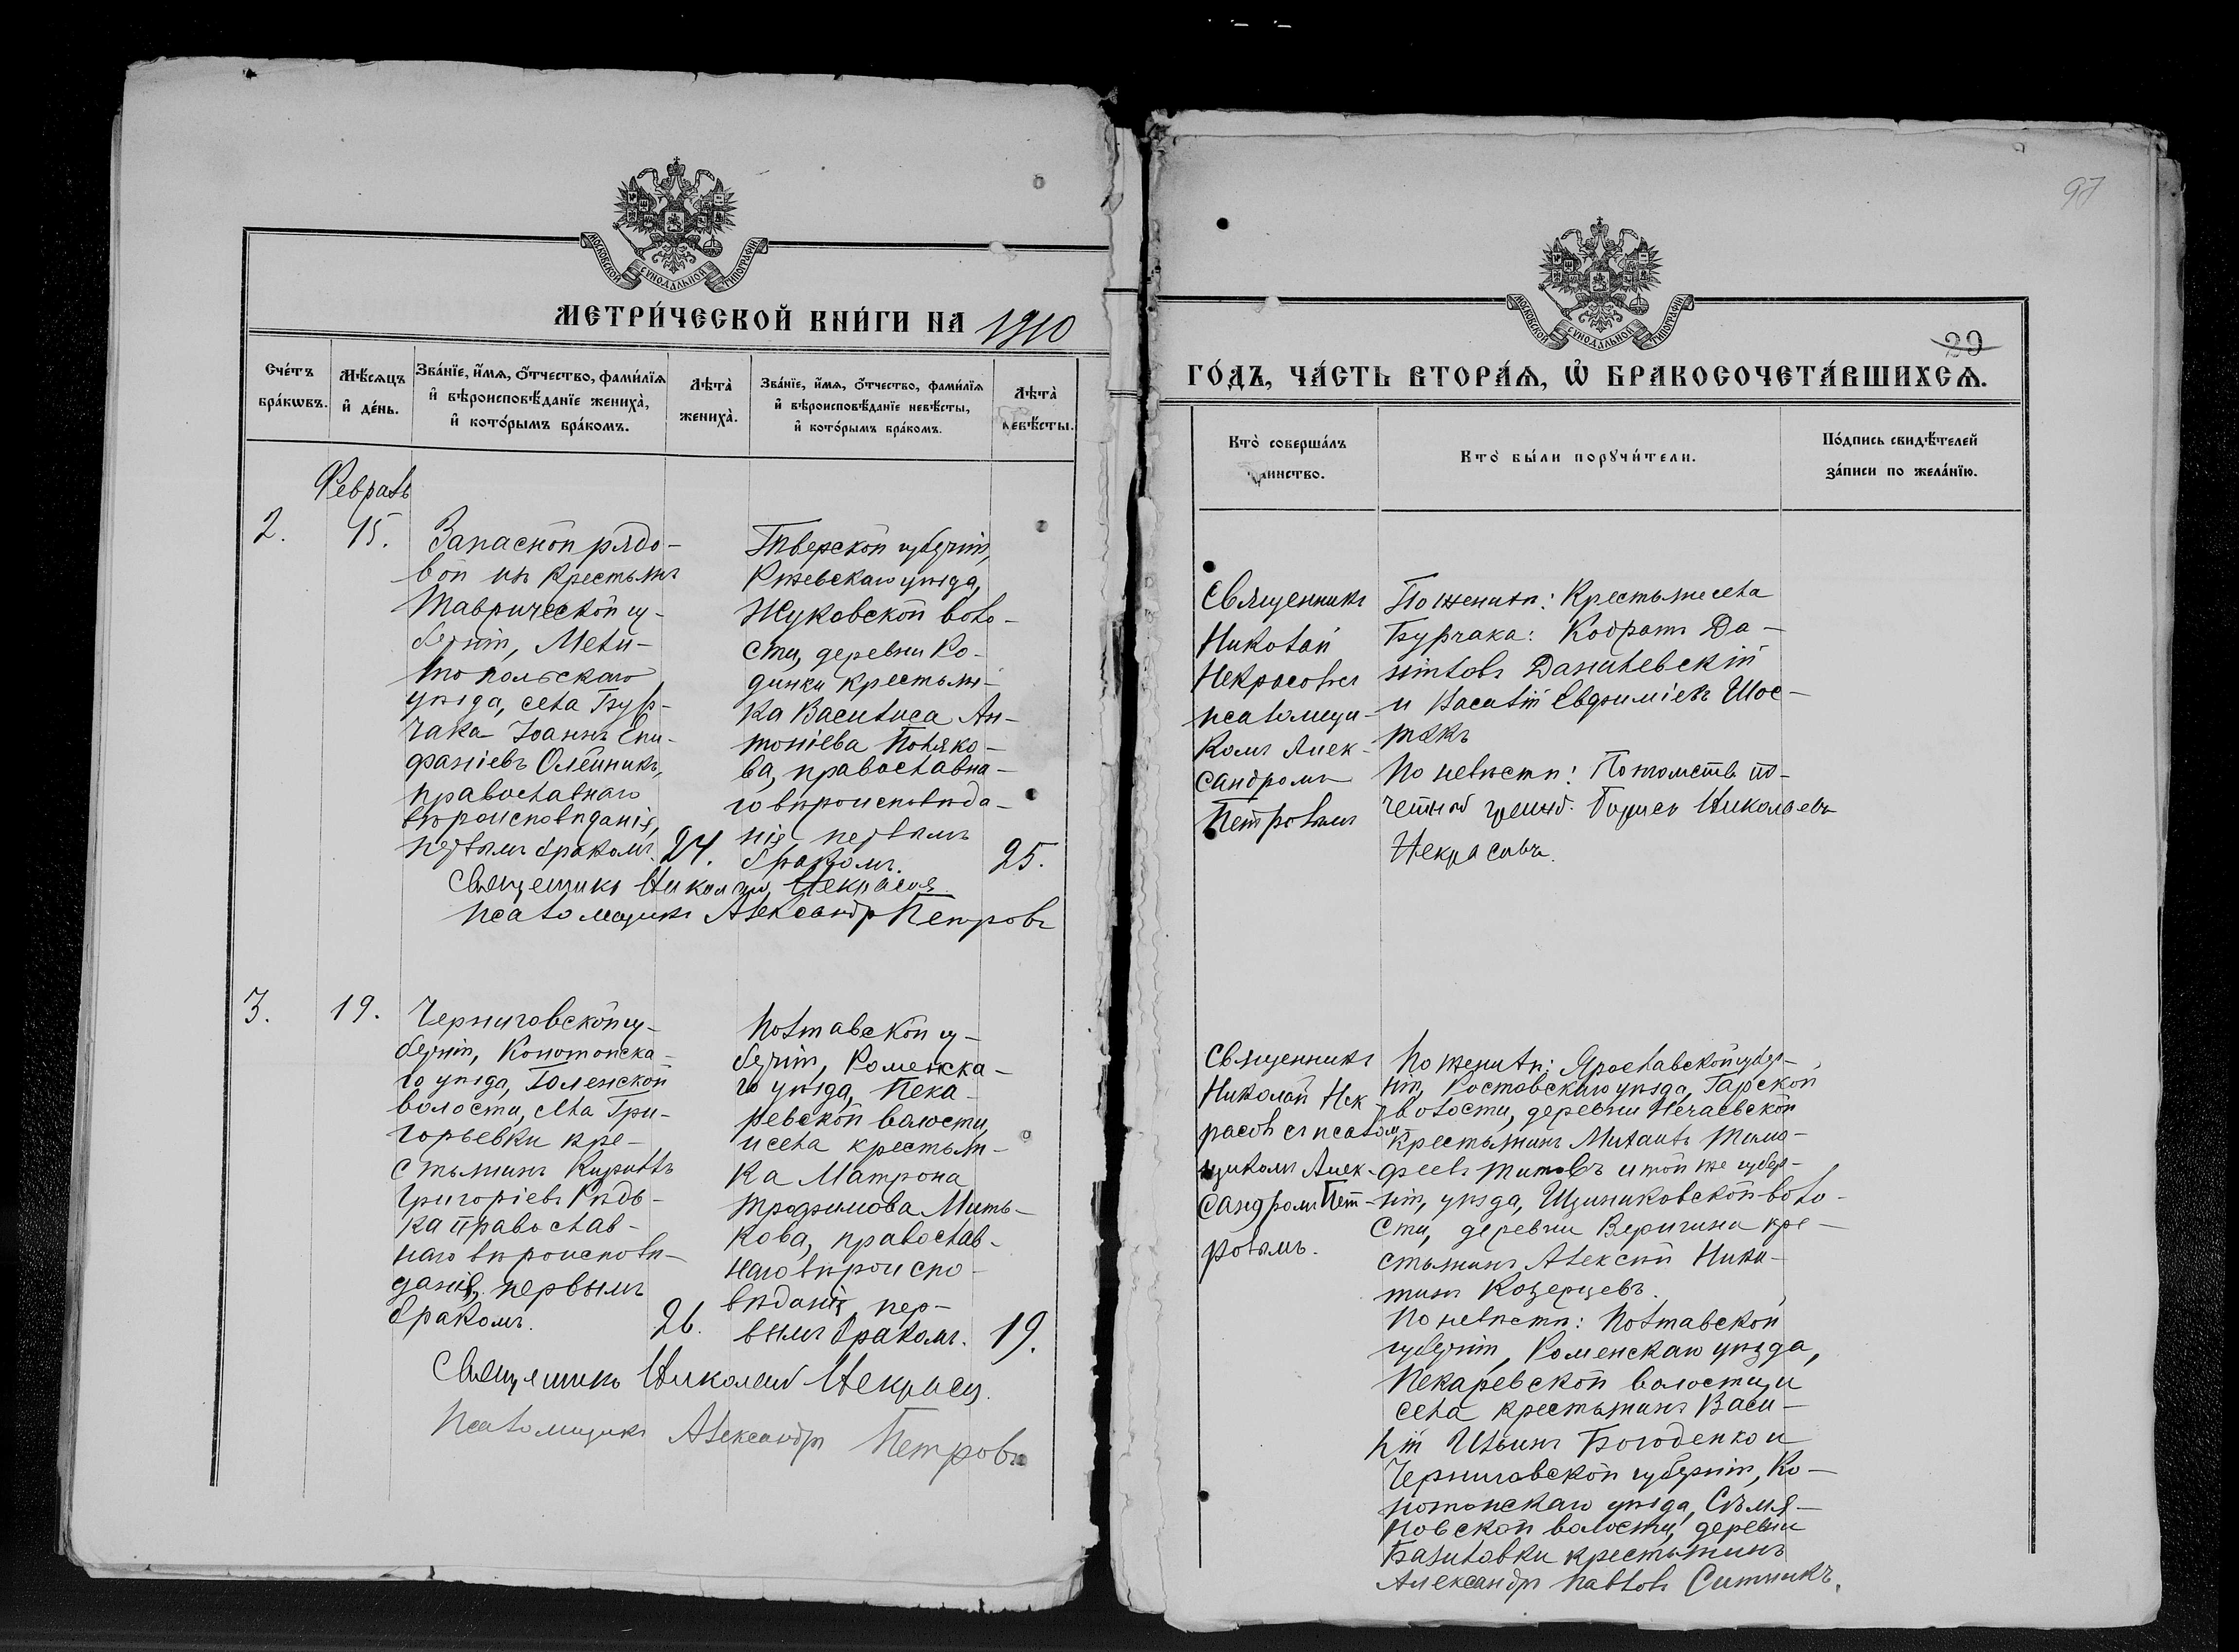 97
МОСКОВСКОЙ СѴНОДАЛЬНОЙ ТИПОГРАФІИ
МЕТРИ́ЧЕСКОЙ КНИ́ГИ НА 1910
Сче́тъ бра́кѡвъ.
Мѣ́сяцъ и҆ де́нь.
Зва́нїе, и҆́мѧ, ѻ҆́тчество, фами́лїѧ
и҆ вѣроисповѣ́данїе жениха̀,
и҆ кото́рымъ бра́комъ.
Лѣта̀ жениха̀.
Зва́нїе, и҆́мѧ, ѻ҆́тчество, фами́лїѧ
и҆ вѣроисповѣ́данїе невѣ́сты,
и҆ кото́рымъ бра́комъ.
Лѣта̀ невѣ́сты.
Февраль
2.
15.
Запасной рядо-
вой изъ крестьянъ
Таврической гу-
берніи, Мели-
топольскаго
уѣзда, села Бур-
чака Іоаннъ Епи-
фаніевъ Олейникъ,
православнаго
вѣроисповѣданія,
первымъ бракомъ.
24.
Тверской губерніи,
Ржевскаго уѣзда,
Жуковской воло-
сти, деревни Ко-
динки крестьян-
ка Василиса Ан-
тоніева Поляко-
ва, православна-
го вѣроисповѣда-
нія первымъ
бракомъ.
25.
Священникъ Николай Некрасов
Псаломщикъ Александръ Петровъ
3.
19.
Черниговской гу-
берніи, Конотопска-
го уѣзда, Голенской
волости, села Гри-
горьевки кре-
стьянинъ Кириллъ
Григоріевъ Рѣдь-
ка православ-
наго вѣроисповѣ-
данія, первымъ
бракомъ.
26.
Полтавской гу-
берніи, Роменска-
го уѣзда, Пека-
ревской волости,
и села крестьян-
ка Матрона
Трофимова Мить-
кова, православ-
наго вѣроиспо-
вѣданія, пер-
вымъ бракомъ.
19.
Священникъ Николай Некрасов
Псаломщикъ Александръ Петровъ
МОСКОВСКОЙ СѴНОДАЛЬНОЙ ТИПОГРАФІИ
29
ГО́ДЪ, ЧА́СТЬ ВТОРА́Ѧ, Ѡ҆ БРАКОСОЧЕТА́ВШИХСѦ.
Кто̀ соверша́лъ
таинство.
Кто̀ бы́ли порꙋчи́тели.
По́дпись свидѣ́телей
за́писи по жела́нїю.
Священникъ
Николай
Некрасовъ съ
псаломщи-
комъ Алек-
сандромъ
Петровымъ
По женихѣ: Крестьяне села
Бурчака: Кодратъ Да-
ніиловъ Данилевскій
и Василій Евфиміевъ Шос-
такъ
По невѣстѣ: Потомств. по-
четный гражд. Борисъ Николаевъ
Некрасовъ.
Священникъ
Николай Нек-
расовъ съ псалом-
щикомъ Алек-
сандромъ Пет-
ровымъ.
По женихѣ: Ярославской губер-
ніи, Ростовскаго уѣзда, Гарской
волости, деревни Нечаевской
крестьянинъ Михаилъ Тимо-
феевъ Титовъ и той же губер-
ніи, уѣзда, Щениковской воло-
сти, деревни Веригина кре-
стьянинъ Алексѣй Ники-
тинъ
По невѣстѣ: Полтавской
губерніи, Роменскаго уѣзда,
Пекаревской волости, и
села крестьянинъ Васи-
лій Ильинъ Богоденко и
Черниговской губерніи, Ко-
нотопскаго уѣзда,
волости, деревни
крестьянинъ
Александръ Павловъ Ситникъ.